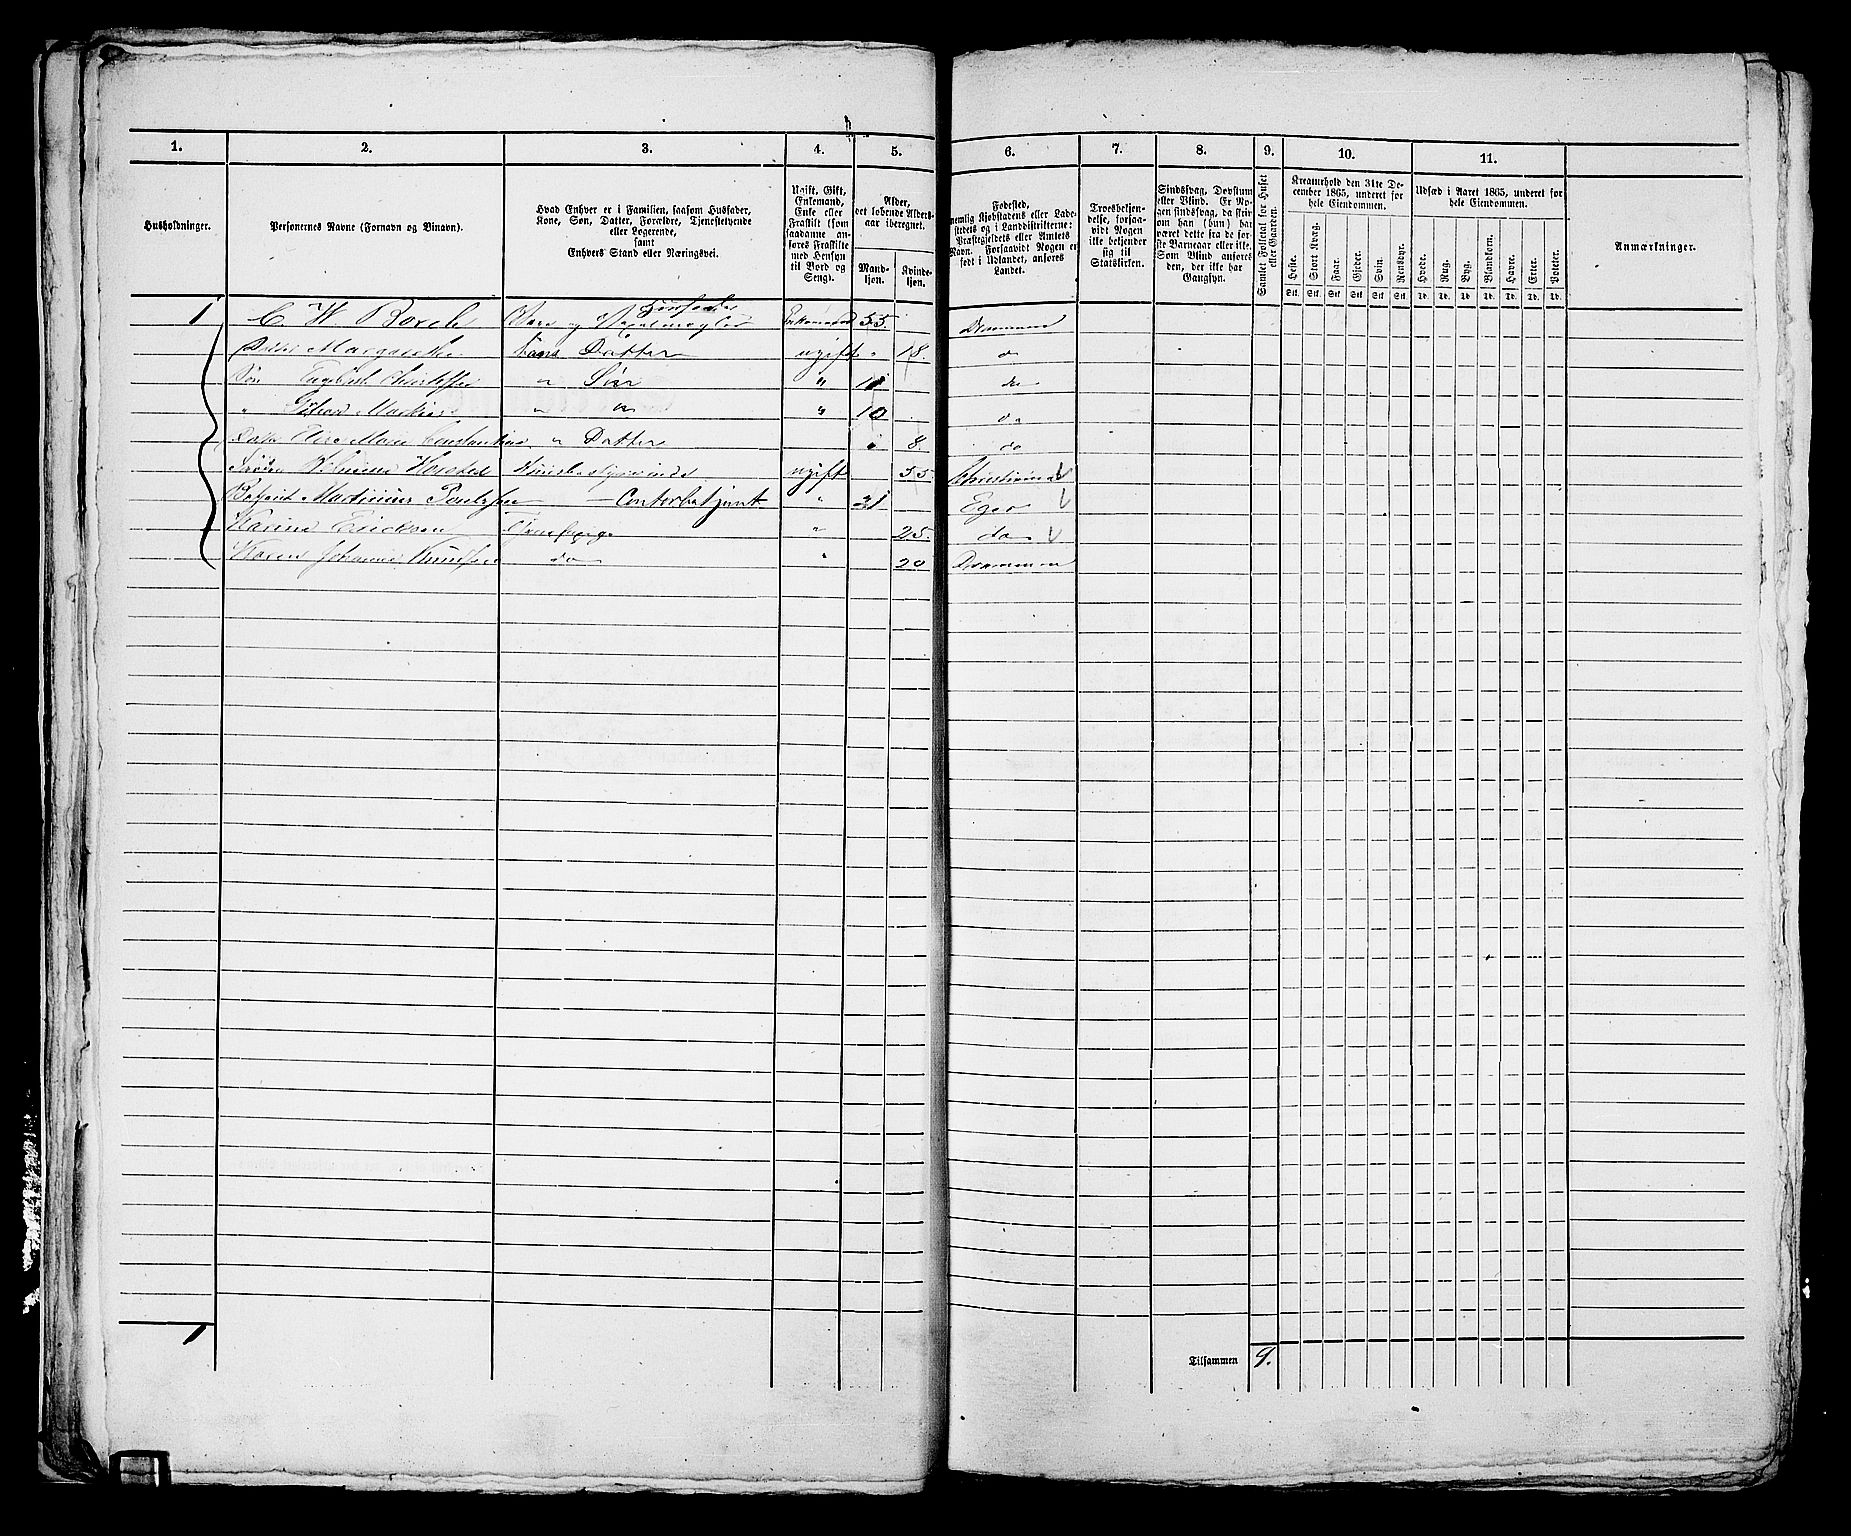 1. 2. 3. 4. 5. 6. 7. 8. 9. 10. 11.
Husholdninger.
Personernes Navne (Fornavn og Binavn).
Hvad Enhver er i Familien, saasom Husfader,
Kone, Søn, Datter, Forældre, Tjenestetyende
eller Logerende,
samt
Enhvers Stand eller Næringsvei.
Ugift, Gift,
Enkemand,
Enke eller
Fraskilt (som
saadanne an-
føres Fraskilte
med Hensyn
til Bord og
Seng).
Alder,
det løbende Alders-
aar iberegnet.
Mand-
kjøn.
Kvinde-
kjøn.
Fødested,
nemlig Kjøbstadens eller Lade-
stedets og i Landdistrikterne:
Præstegjeldets eller Amtets
Navn. Forsaavidt Nogen er
født i Udlandet, anføres
Landet.
Troesbekjen-
delse, forsaa-
vidt Nogen
ikke bekjender
sig til
Statskirken.
Sindssvag, Døvstum
eller Blind. Er No-
gen sindssvag, da skriv
om han (hun) har
været dette fra de før-
ste Barneaar eller ikke.
Som Blind anføres
den, der ikke har
Gangsyn.
Samlet Folketal for Huset
eller Gaarden.
Kreaturhold den 31te De-
cember 1865, underet for
hele Eiendommen.
Heste. Stort Kvæg. Faar. Gjeder. Svin. Rensdyr.
Stk. Stk. Stk. Stk. Stk. Stk.
Udsæd i Aaret 1865, underet for
hele Eiendommen.
Hvede. Rug. Byg. Blandkorn. Havre. Erter. Poteter.
Td. Td. Td. Td. Td. Td. Td.
Anmærkninger.
1 C. W. Borch Husfader Enkemand 55 Drammen
Datter Margarethe hans Datter ugift " 18. do
Søn " Søn " 11 do
" " " " 10 do
Elise Marie " Datter " 8. do
ugift 55 Christiania
Martinius Paulsen Contorbetjent " 31 Eger
Karine Ericksen Tjenestepige " 25. do
Karen Johanne Knudsen do " 20 Drammen
1
Tilsammen 9.